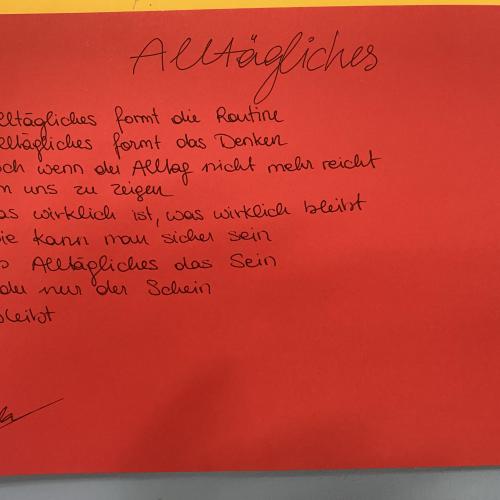 Alltägliches
lltägliches formt die Routine
lltägliches formt das Denken
och wenn der Alltag nicht mehr reicht
m uns zu zeigen
as wirklich ist, was wirklich bleibt
ie kann man sicher sein
Alltägliches das Sein
der nur der Schein
bleibt